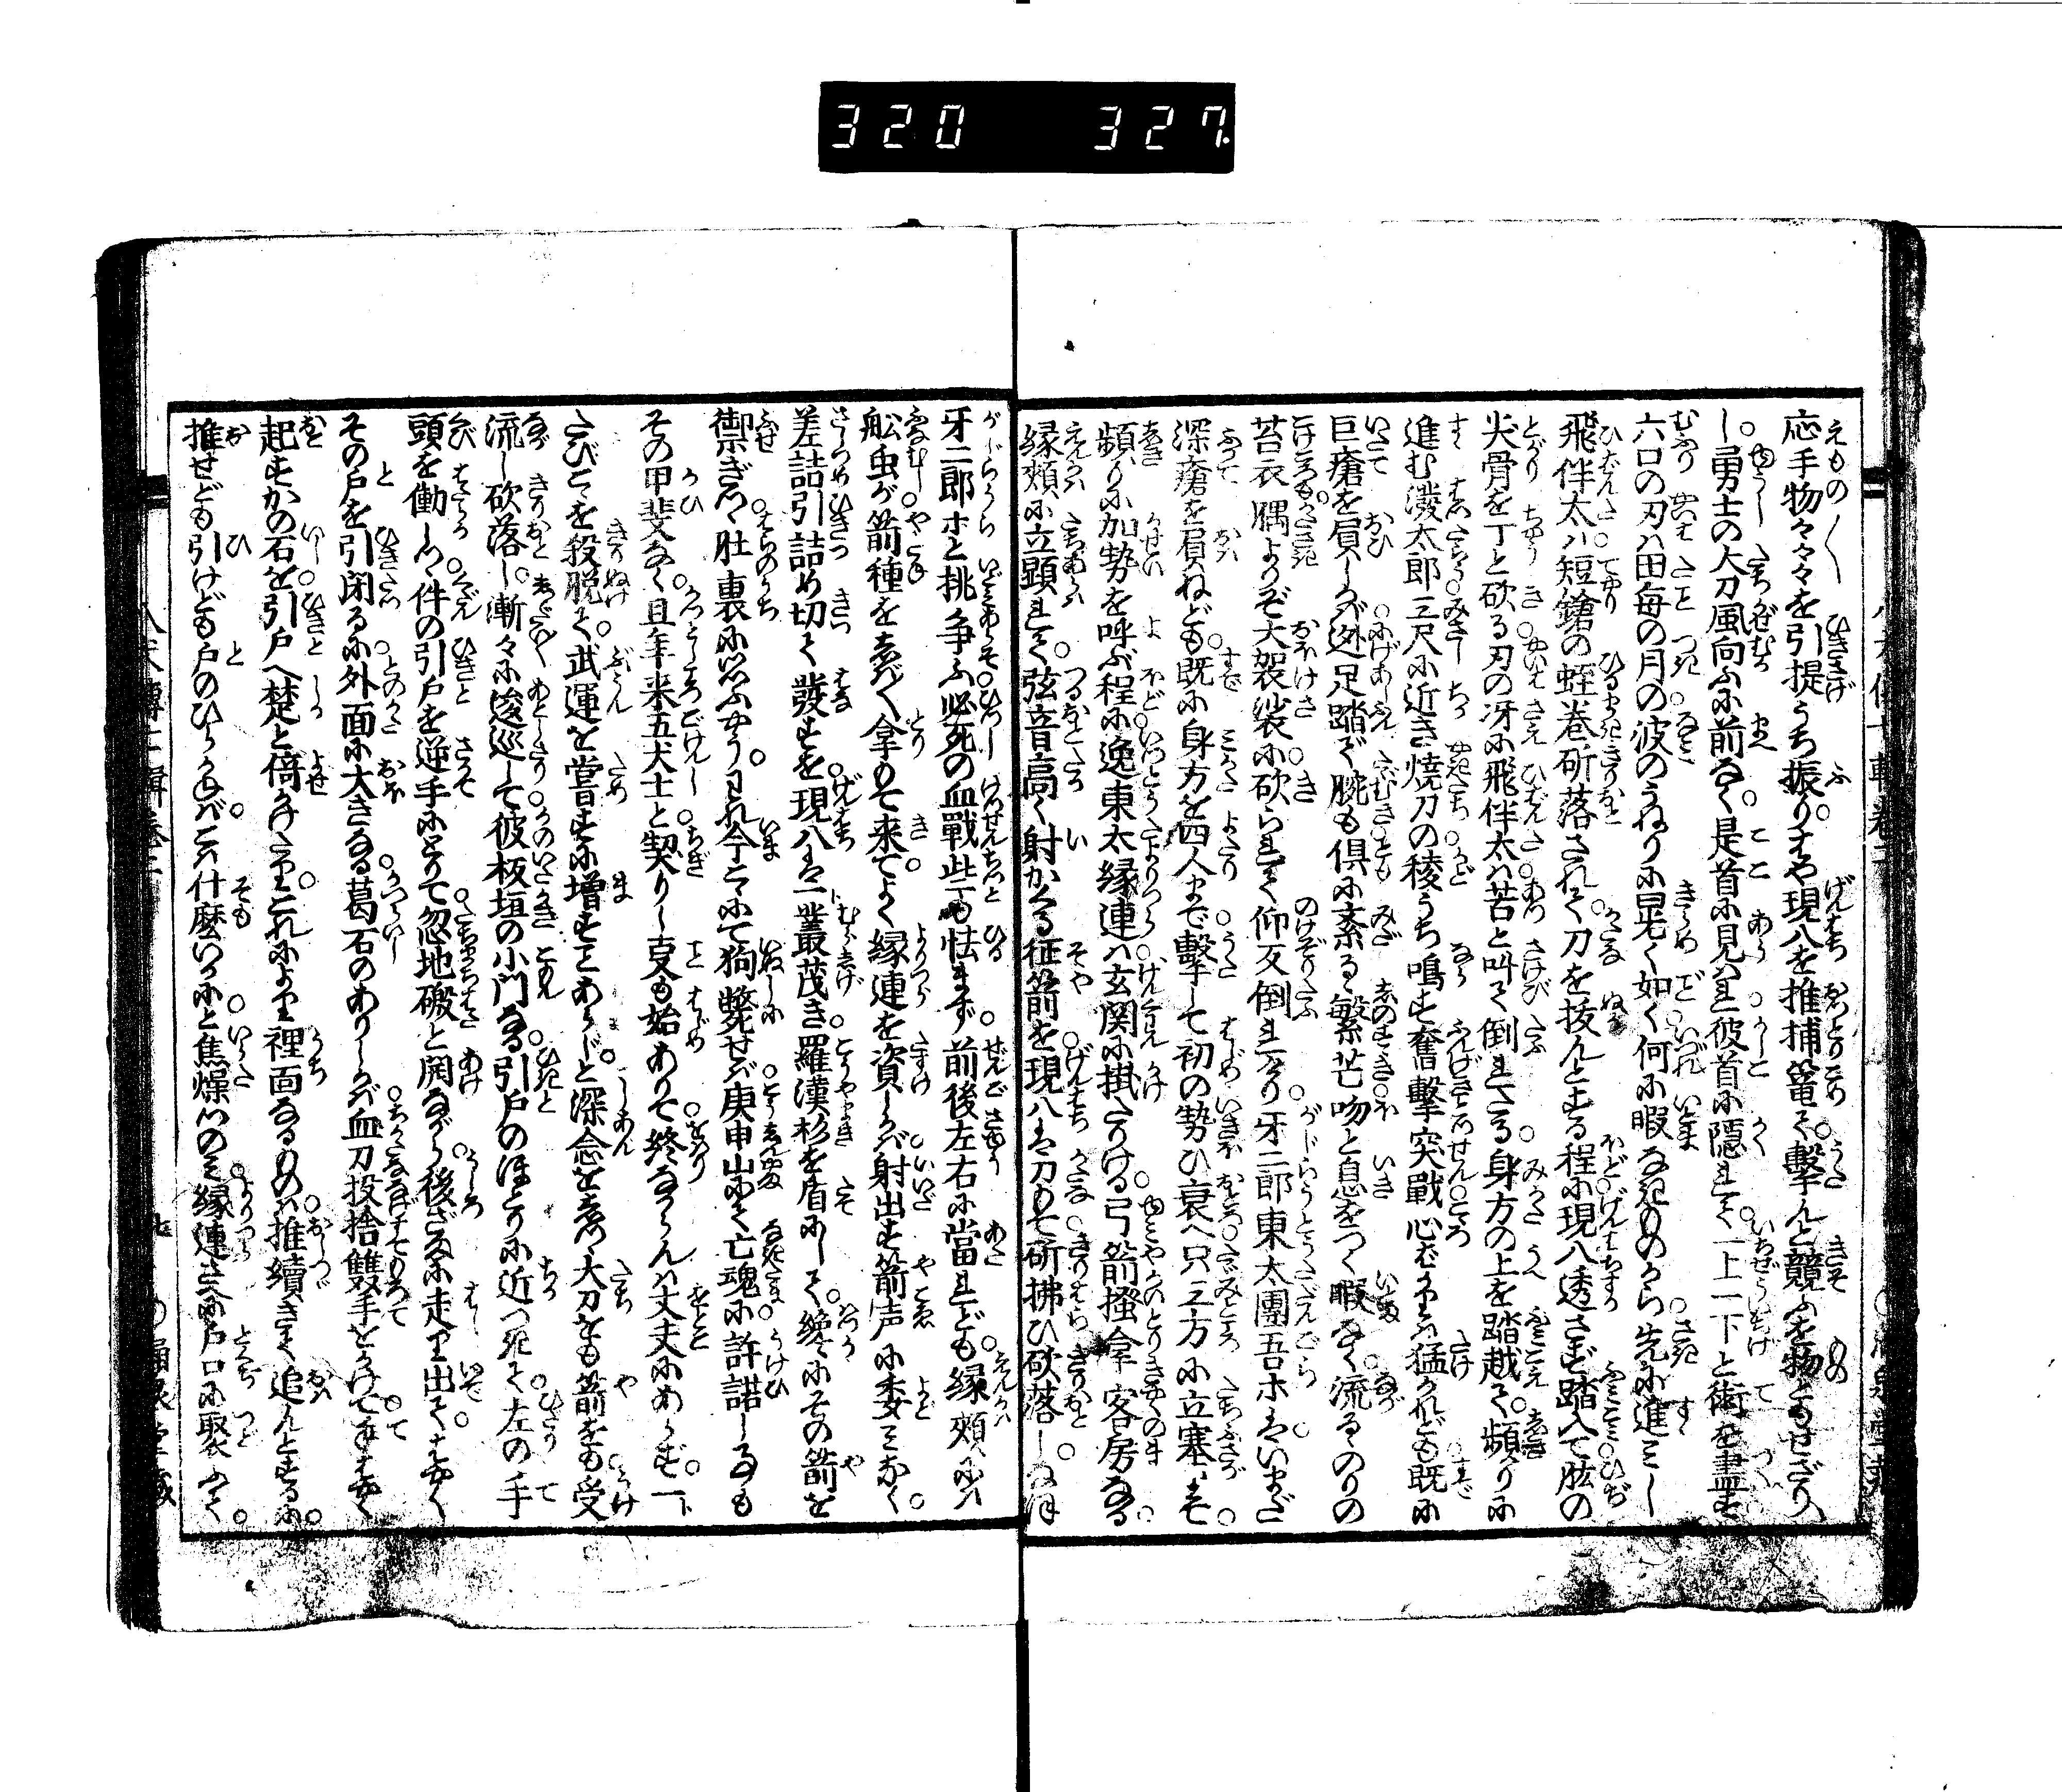 320 327
応手物々々々を引提うち振りすや現八を推捕篭て撃んと競ふを物ともせざり
し勇士の大刀風向ふに前なく是首に見れ彼首に隠れて一上一下と術を尽す
六口の刃ハ田毎の月の波のうねりに晃く如く何に暇なきものから先に進みし
飛伴太ハ短鎗の蛭巻斫落されて刀を抜んとする程に現八透さず踏入て肱の
尖骨を丁と砍る刃の冴に飛伴太ハ苦と叫て倒れたる身方の上を踏越て頻りに
進む溌太郎三尺に近き焼刀の稜うち鳴す奮撃突戦心ばかりハ猛けれども既に
巨瘡を屓しかバ迯足踏で腕も倶に紊るゝ繁芒吻と息をつく暇なく流るゝのりの
苔衣隅よりぞ大袈裟に砍られて仰反倒れけり牙二郎東太團吾ホハいまだ
深瘡を屓ねども既に身方を四人まで撃して初の勢ひ衰へ只三方に立塞ハず
頻りに加勢を呼ぶ程に逸東太縁連ハ玄関に掛たりける弓箭搔拿客房なる
縁頬に立顕れて弦音高く射かくる征箭を現八ハ刀もて斫拂ひ砍落しなほ
牙二郎ホと挑争ふ必死の血戦些も怯まず前後左右に當れども縁頬にハ
舩虫が箭種をおほく拿もて来てよく縁連を資しかバ射出す箭声に委みなく
差詰引詰め切て發すを現八ハ一叢茂き羅漢杉を盾にして纔にその箭を
禦ぎつゝ肚裏に思ふやうわれ今こゝにて狗斃せバ庚申山にて亡魂に許諾しゝ事も
その甲斐なく且年来五犬士と契りし叓も始ありて終なからんハ丈夫にあらず一ト
たびこゝを殺脱て武運を嘗すに増すことあらじと深念をしつゝ大刀をも箭をも受
流し砍落し漸々に逡巡して彼板垣の小門なる引戸のほとりに近つきて左の手
頭を働しつゝ件の引戸を逆手にとりて忽地磤と開ながら後ざまに走り出てはやく
その戸を引閉るに外面に大きなる葛石のありしかバ血刀投捨雙手をかけてはやく
起すかの石を引戸へ楚と倚かけたりこれにより裡面なるものハ推續きて追んとするに
推せども引けども戸のひらかねバこハ什麼いかにと焦燥のミ縁連共に戸口に聚ふて